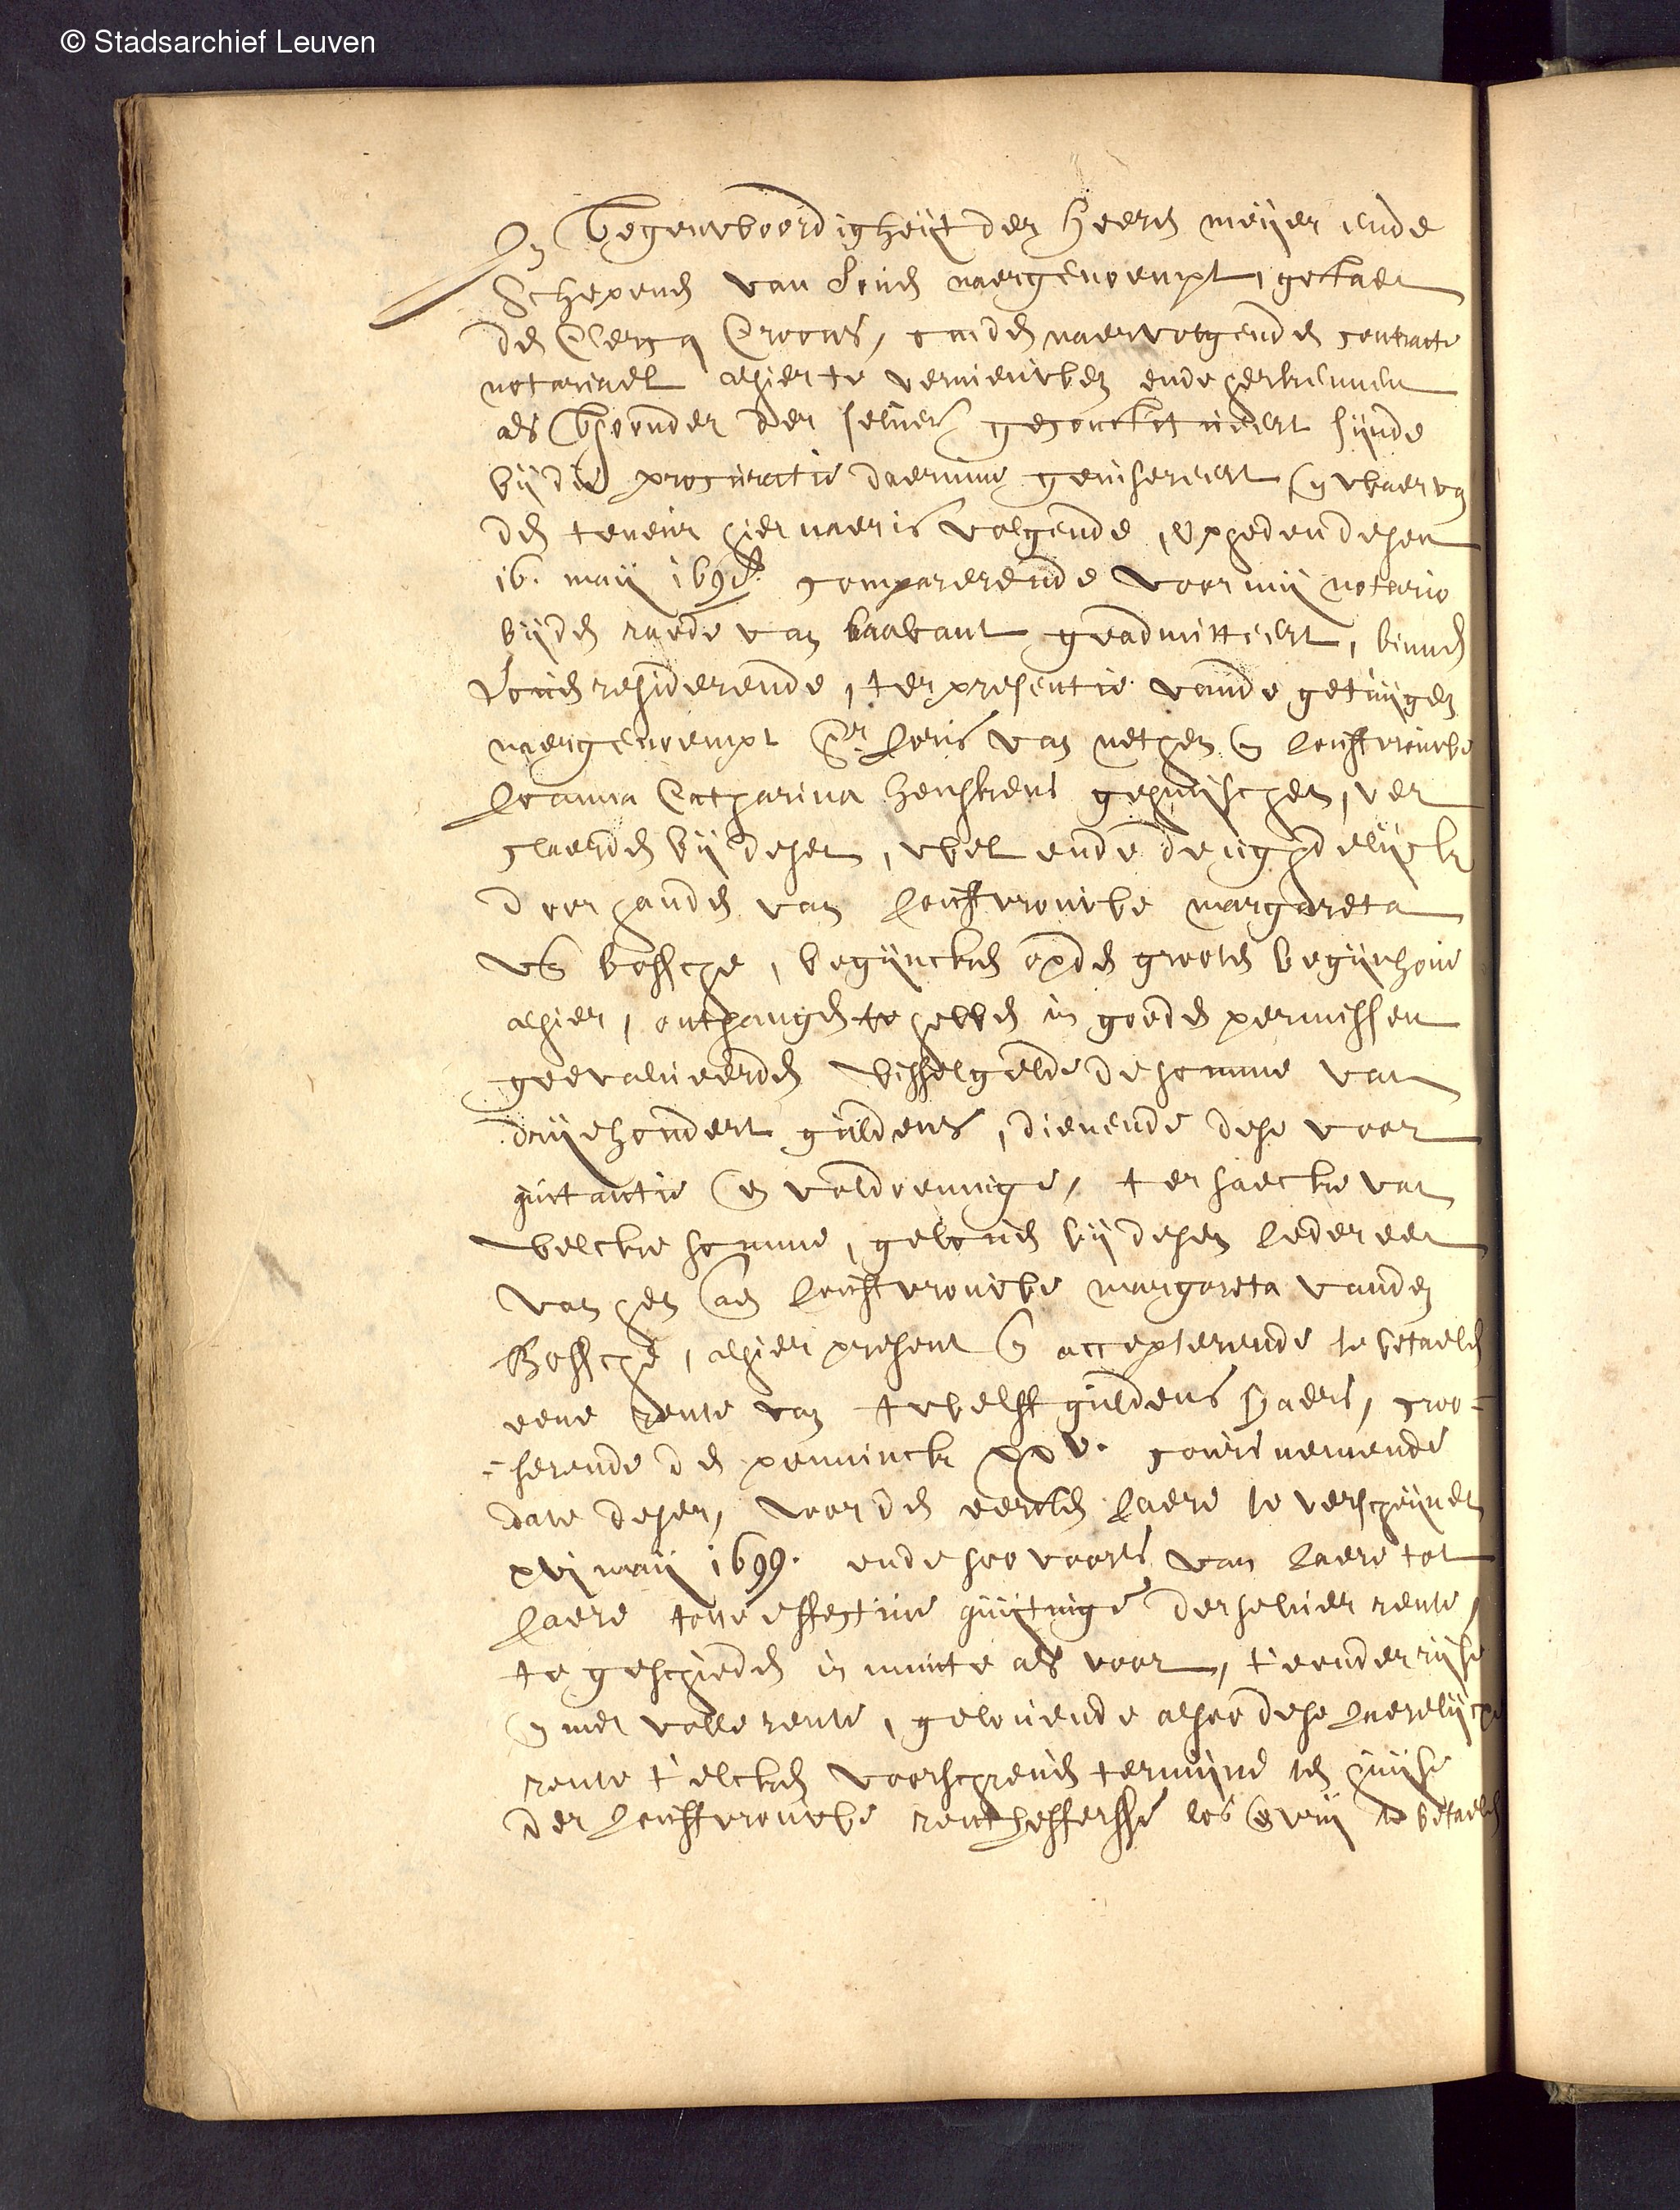 © Stadsarchief Leuven
In Tegenwoordigheijt der heeren meijer ende
Schepenen van Loven naergenoempt, gestaen
den Clercq Croons, omden naervolgenden contracte
notariael alhier te vernieuwen ende herkennen
als thoonder der selver geconstitueert sijnde
bijde procuratie daerinne geinsereert en waer van
den teneur hier naer is volgende, opheden desen
16. maij 1698. comparerende voor mij notario
bijden raede van brabant geadmitteert, binnen
Loven residerende, ter presentie vande getuijgen
naergenoempt Sr. Joris van nethen en Jouffrouwe
Joanna Catharina henskens gehuijschen, ver
claerden bij desen, wel ende deughdelijck
door handen van Jouffrouwe margareta
vanden bossche, begijncken opden grooten begijnhove
alhier, ontfangen te hebben in goeden permissen
geevalueerden wisselgelde de somme van
drijehondert guldens, dienende dese voor
quitantie en voldoeninge, ter saecke van
welcke somme, geloven bij desen Jeder een
van hen aen Jouffrouwe margareta vanden
Bossche, alhier present en accepterende te betaelen
eene rente van twelff guldens sjaers, croo-
-serende den penninck xxv. cours nemende
date deser, waer den eersten Jaere te verscheijnen
xvj maij 1699. ende soo voorts van Jaere tot
Jaere totte effective quijtinge der selver rente,
te geschieden in munte als voor, t'eender rijse
en met volle rente, gelovende alsoo dese Jaerelijcxe
rente t'elcken voorschreven termijne ten huijse
der Jouffrouwe rentheffersse los en vrij te betaelen